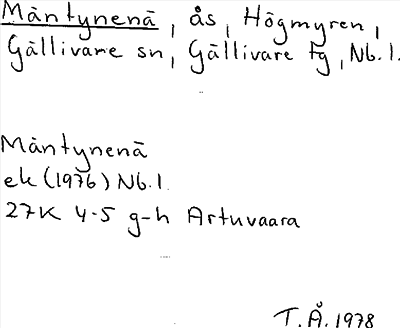 Mäntynenä, ås, Högmyren,
Gällivare sn, Gällivare tg, Nb.l.
Mäntynenä
ek (1976) Nb.l.
27K 4-5 g-h Artuvaara
T.Å. 1978